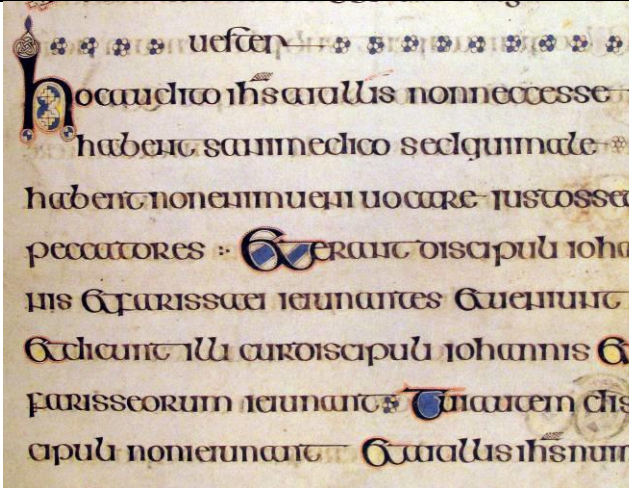 uester
hoc audito ihs ait illis non neccesse
habent sani medico sed qui male
habent non enim ueni uocare iustos sed
peccatores Et erant discipuli ioha
nis et farissaei ieiunantes et ueniunt
et dicunt illi cur discipuli iohannis et
farisseorum ieiunant Tui autem dis
cipuli non ieiunant et ait illis ihs num